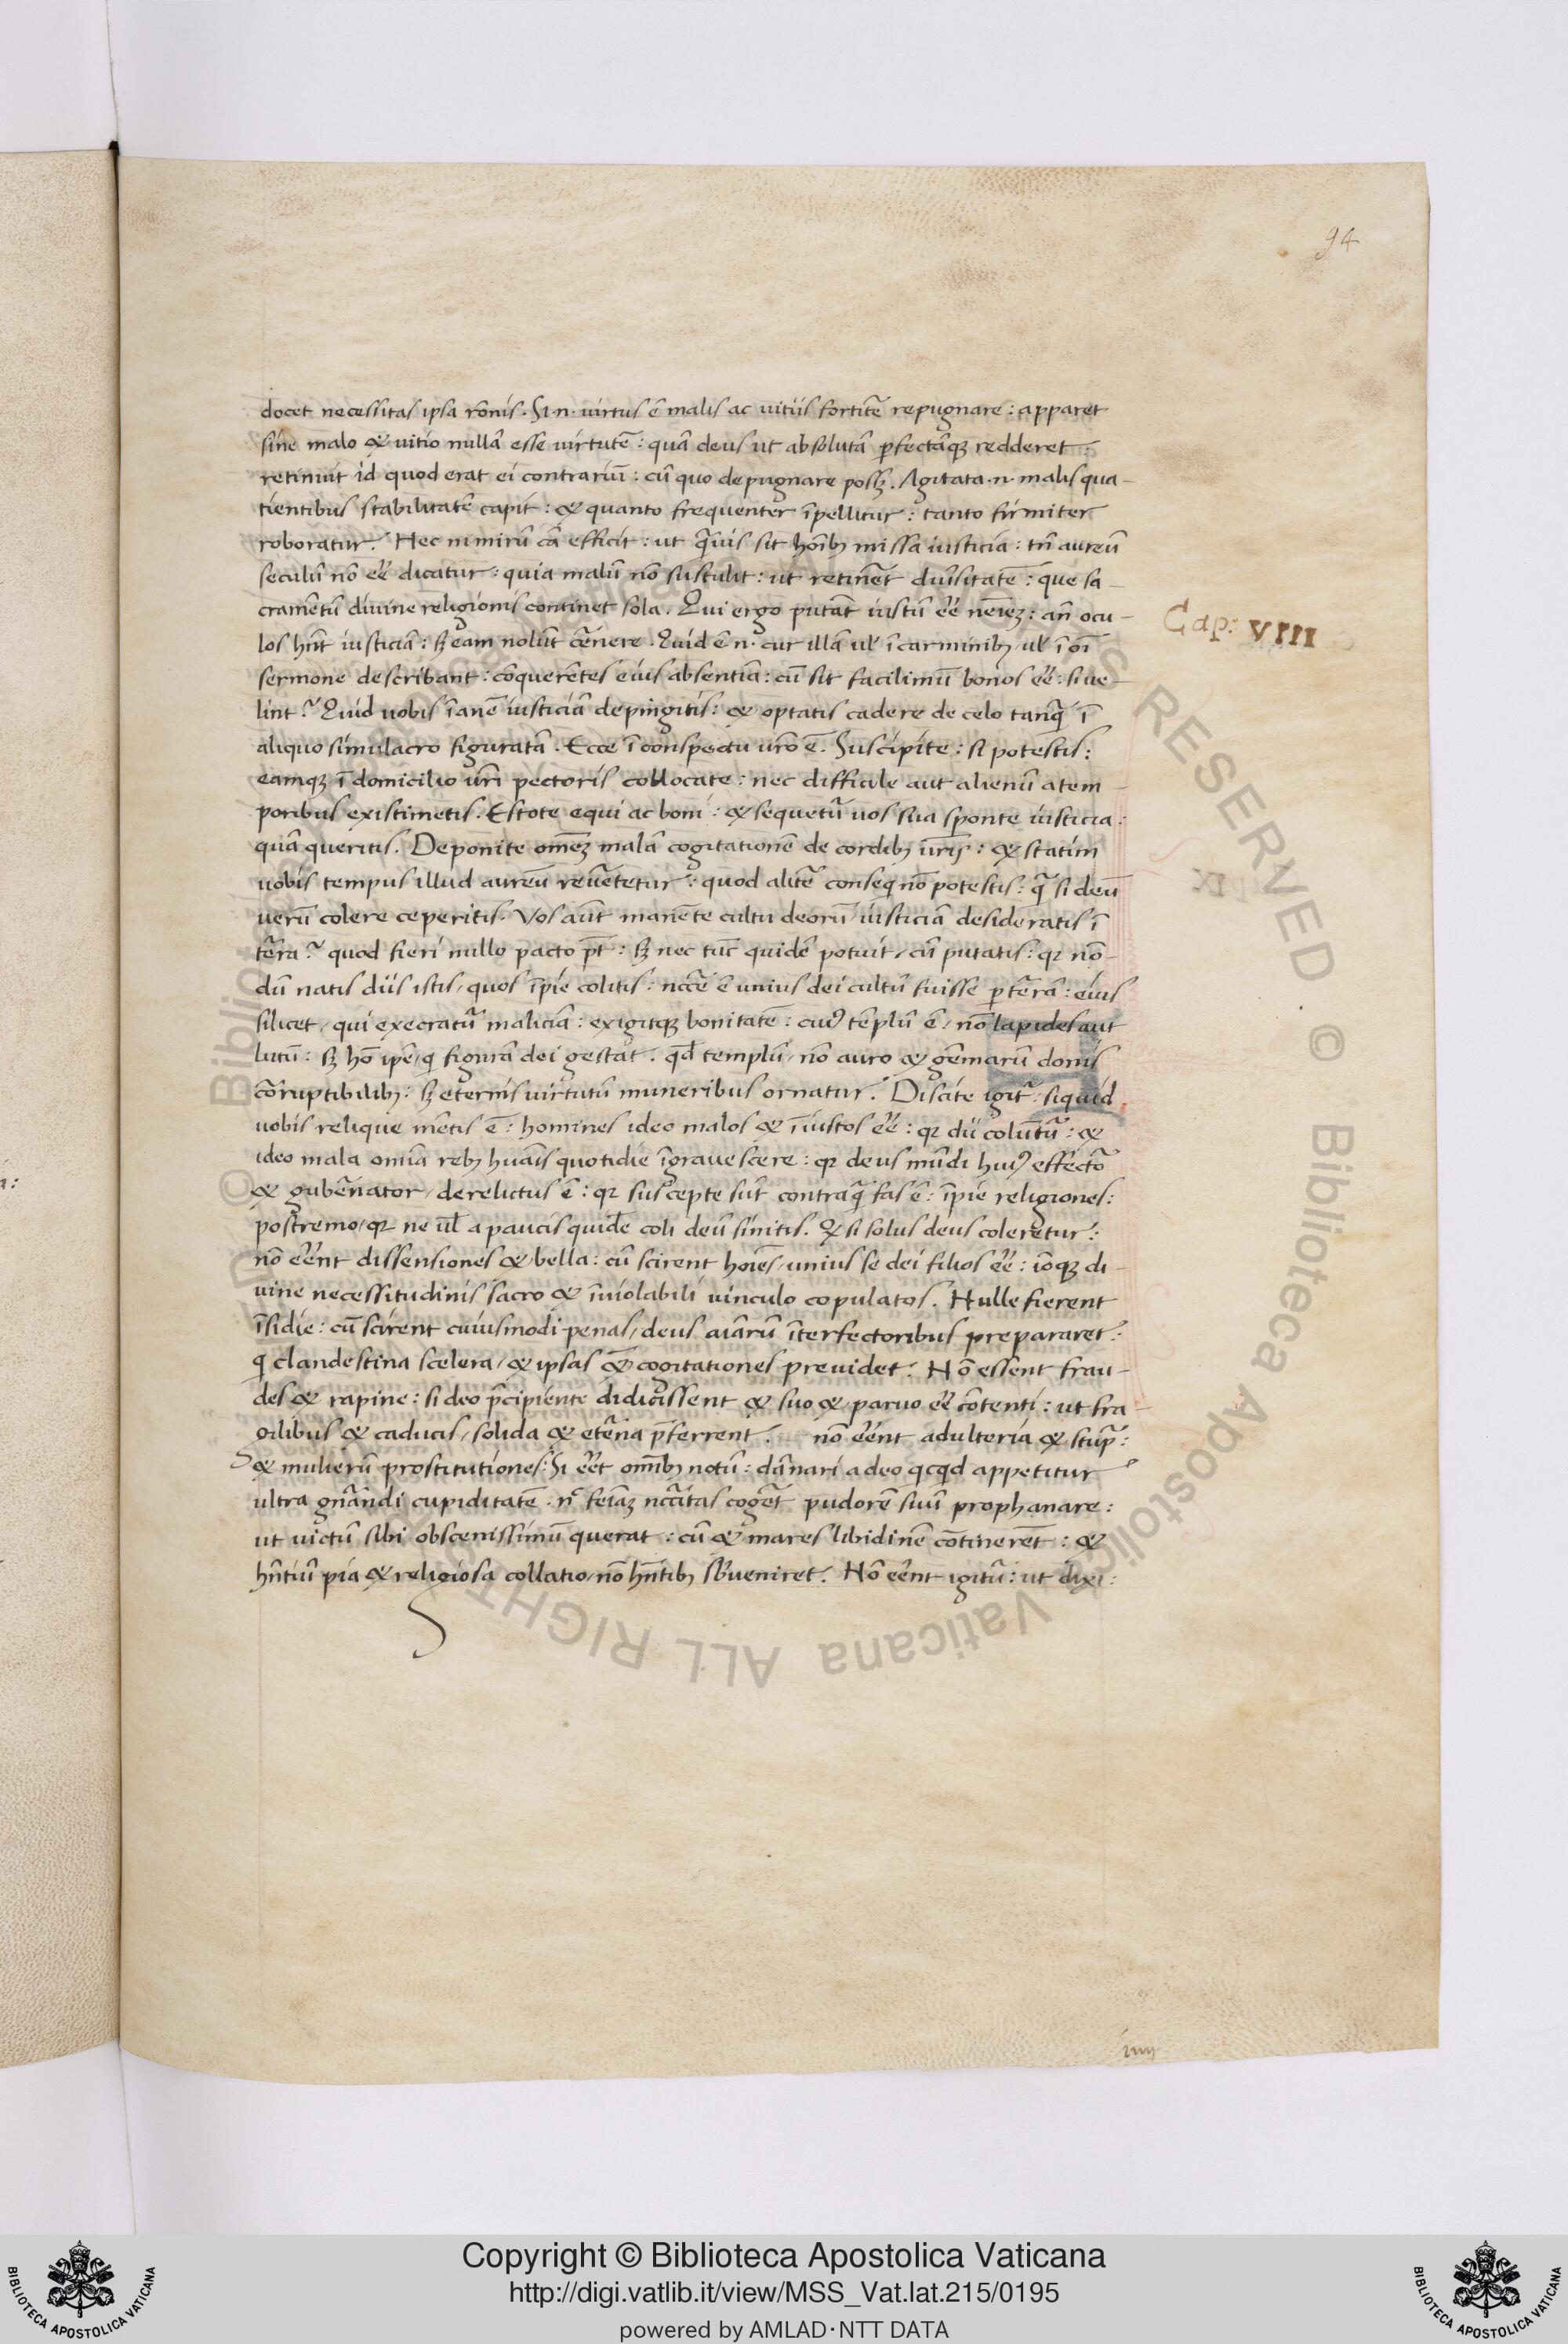 94
docet necessitas ipsa rōnis. Si .n. virtus ē malis ac vitiis fortitē repugnare: apparet
sine malo & vitio nullā esse virtutē: quā deus ut absolutā ꝑfectāqꝫ redderet:
retinuit id quod erat ei contrariū: cū quo depugnare possꝫ. Agitata .n. malis qua-
tientibus stabilitatē capit: & quanto frequenter īpellitur: tanto firmiter
roboratur. Hec nimirū cā efficit: ut q̄vis sit hoībꝫ missa iusticia: tn̄ aureū
seculū nō eē dicatur: quia malū nō sustulit: ut retinēt diversitatē: que sa-
cramētū divine religionis continet sola. Qui ergo putāt iustū eē nemīeꝫ: an̄ ocu-
los hn̄t iusticiā: sꝫ eam nolūt cērnere. Quid ē .n. cur illā ul̄ ī carminibꝫ, ul̄ ī oī
sermone describant: cōquerētes eius absentiā: cū sit facilimū bonos eē: si ve-
lint? Quid vobis īanē iusticiā depingitis: & optatis cadere de celo tanq̄ ī
aliquo simulacro figuratā. Ecce ī conspectu vr̄o ē. Suscipite: si potestis:
eamqꝫ ī domicilio vr̄i pectoris collocate: nec difficile aut alienū a tem-
poribus existimetis. Estote equi ac boni: & sequetur̄ vos sua sponte iusticia:
quā queritis. Deponite omēꝫ malā cogitationē de cordibꝫ vr̄is: & statim
vobis tempus illud aureū revētetur: quod alitē conseq̄ nō potestis: q̄ si deū
verū colere ceperitis. Vos aūt manēte cultu deorū iusticiā desideratis ī
tēra? quod fieri nullo pacto pt̄: sꝫ nec tūc quidē potuit, cū putatis: qꝛ nō-
dū natis diis istis, quos īpie colitis: nccē ē unius dei cultū fuisse ꝑ tērā: eius
silicet, qui execratur̄ maliciā: exigitqꝫ bonitatē: cuiꝰ tēplū ē, nō lapides aut
lutū: sꝫ hō ipē, q̄ figurā dei gestat. qd̄ templū, nō auro & gēmarū donis
cōrruptibilibꝫ: sꝫ eternis virtutū muneribus ornatur. Discite igit̄: si quid
vobis relique mētis ē: homines ideo malos & īiustos eē: qꝛ dii colunt̄ur: &
ideo mala omīa rebꝫ huāis quotidie īgravescere: qꝛ deus mūdi huiꝰ effectō
& gubēnator, derelictus ē: qꝛ suscepte sūt contraq̄ fas ē: īpie religiones:
postremo, qꝛ ne ul̄ a paucis quidē coli deū sinitis. Q̄ si solus deus coleretur:
nō eēnt dissensiones & bella: cū scirent hoīes, unius se dei filios eē: iōqꝫ di-
vine necessitudinis sacro & īviolabili vinculo copulatos. Nulle fierent
īsidie: cū scirent cuiusmodi penas, deus aīarū īterfectoribus prepararet:
q̄ clandestina scelera, & ipsas ēt cogitationes previdet. Nō essent frau-
des & rapine: si deo p̄cipiente didicissent & suo & parvo eē cōtenti: ut fra-
gilibus & caducis, solida & etēna p̄ferrent. nō eēnt adulteria & stup̄:
& mulierū prostitutiones: Si eēt omībꝫ notū: dānari a deo qcqd appetitur
ultra gn̄andi cupiditatē. nͨ feīaꝫ nccītas cogēt pudorē suū prophanare:
ut victū sibi obscenissimū querat: cū & mares libidinē cōtinerēt: &
hn̄tiū pia & religiosa collatio, nō hn̄tibꝫ sb̄veniret. Nō eēnt igitur̄: ut dixi:
Cap: VIII
XI
Copyright © Biblioteca Apostolica Vaticana
http://digi.vatlib.it/view/MSS_Vat.lat.215/0195
powered by AMLAD·NTT DATA
BIBLIOTECA APOSTOLICA VATICANA
BIBLIOTECA APOSTOLICA VATICANA
© Biblioteca Apostolica Vaticana ALL RIGHTS RESERVED